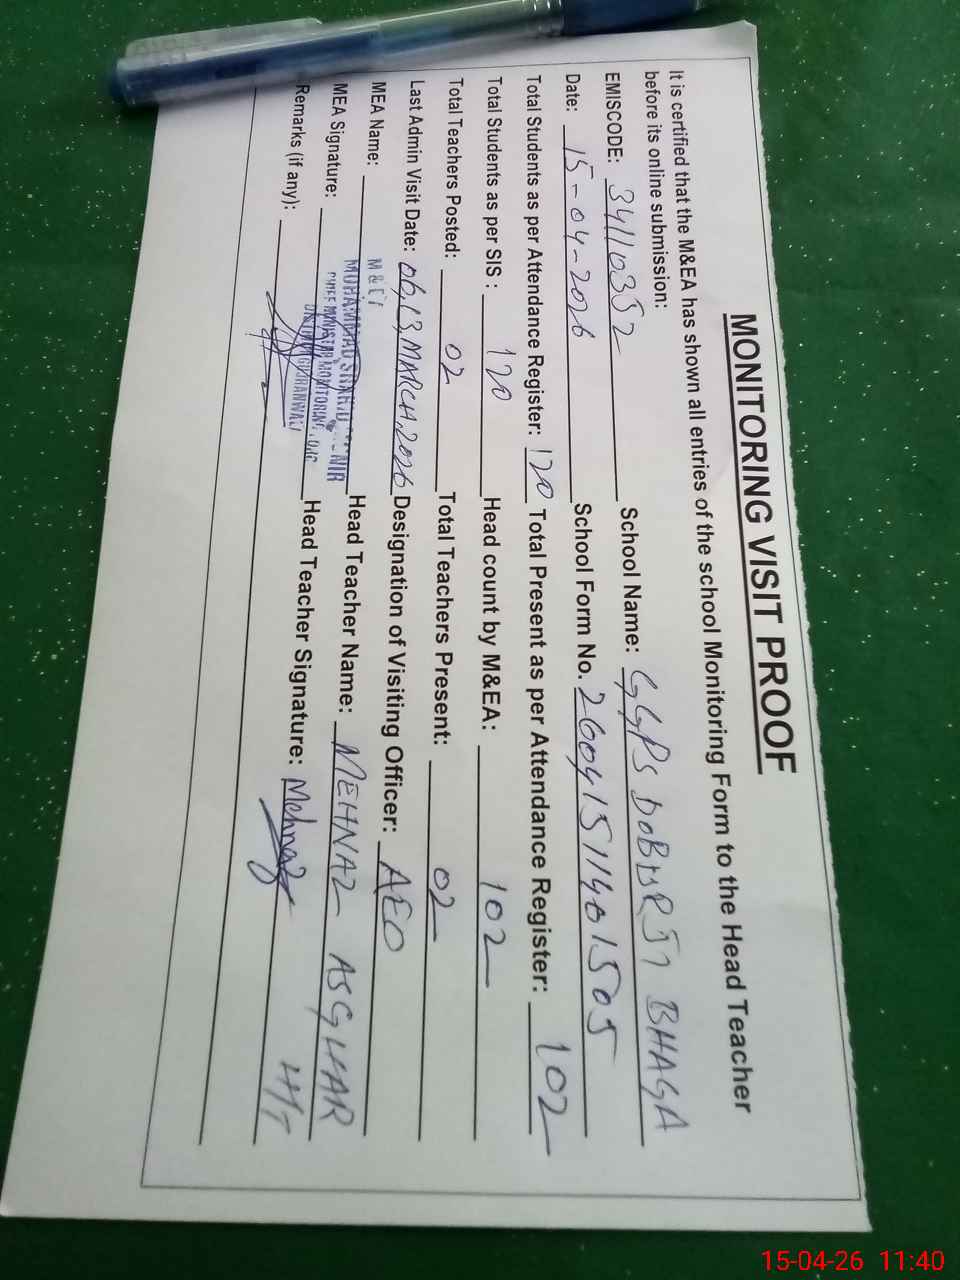 MONITORING VISIT PROOF
It is certified that the M&EA has shown all entries of the school Monitoring Form to the Head Teacher
before its online submission:
EMISCODE: 34110352 School Name: GGPS BHAGA
Date: 15-04-2026 School Form No. 26041511401505
Total Students as per Attendance Register: 120 Total Present as per Attendance Register: 102
Total Students as per SIS : 120 Head count by M&EA: 102
Total Teachers Posted: 02 Total Teachers Present: 02
Last Admin Visit Date: 06,13,MARCH,2026 Designation of Visiting Officer: AEO
MEA Name: Head Teacher Name: MEHNAZ ASGHAR
MEA Signature: MUHAMMAD Head Teacher Signature: Mehnaz
CHIEF MINISTER MONITORING
Remarks (if any):
15-04-26 11:40